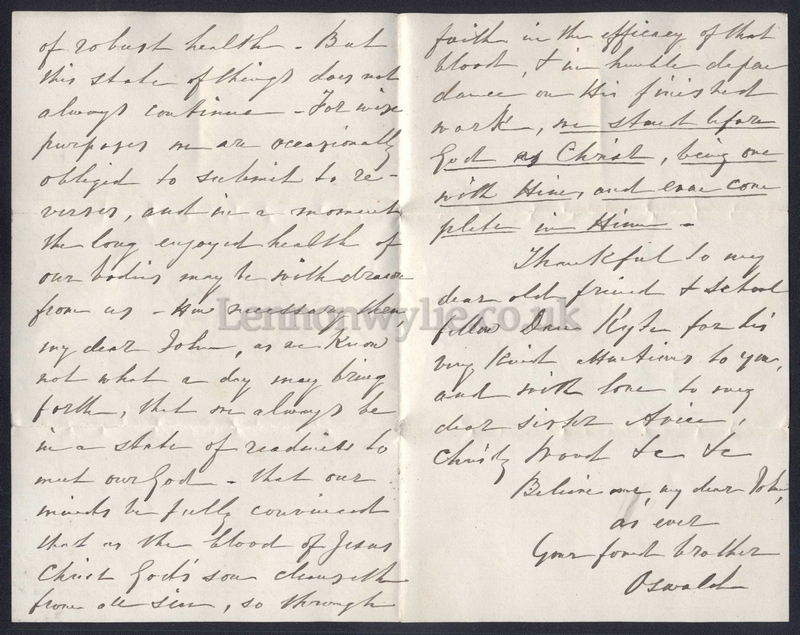 of robust health - But
this state of things does not
always continue - For wise
purposes we are occasionally
obliged to submit to re-
verses, and in a moment
the long enjoyed health of
our bodies may be withdrawn
from us - How necessary then,
my dear John, as we know
not what a day may bring
forth, that we always be
in a state of readiness to
meet our God - that our
minds be fully convinced
that as the blood of Jesus
Christ God's son cleanseth
from all sin, so through
faith in the efficacy of that
blood, & in humble depen
dance on His finished
work, we stand before
God as Christ, being one
with Him, and even com
plete in Him -
Thankful to my
dear old friend & school
fellow Dan Kyle for his
very kind attentions to you,
and with love to my
dear sister Avice,
Christy Wood &c &c
Believe me, my dear John,
as ever
Your fond brother
Oswald
Lennonwylie.co.uk